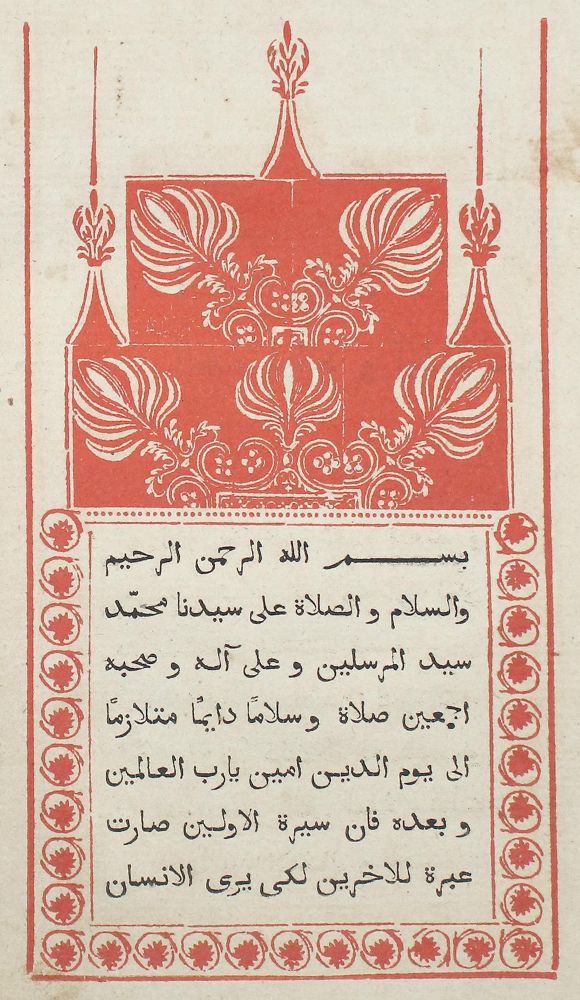 بســـــم الله الرحمن الرحيم
والسلام والصلاة على سيدنا محمّد
سيد المرسلين وعلى آله وصحبه
اجمعين صلاة وسلامًا دايمًا متلازمًا
الى يوم الدين امين يارب العالمين
وبعده فان سيرة الاولين صارت
عبرة للاخرين لكى يرى الانسان